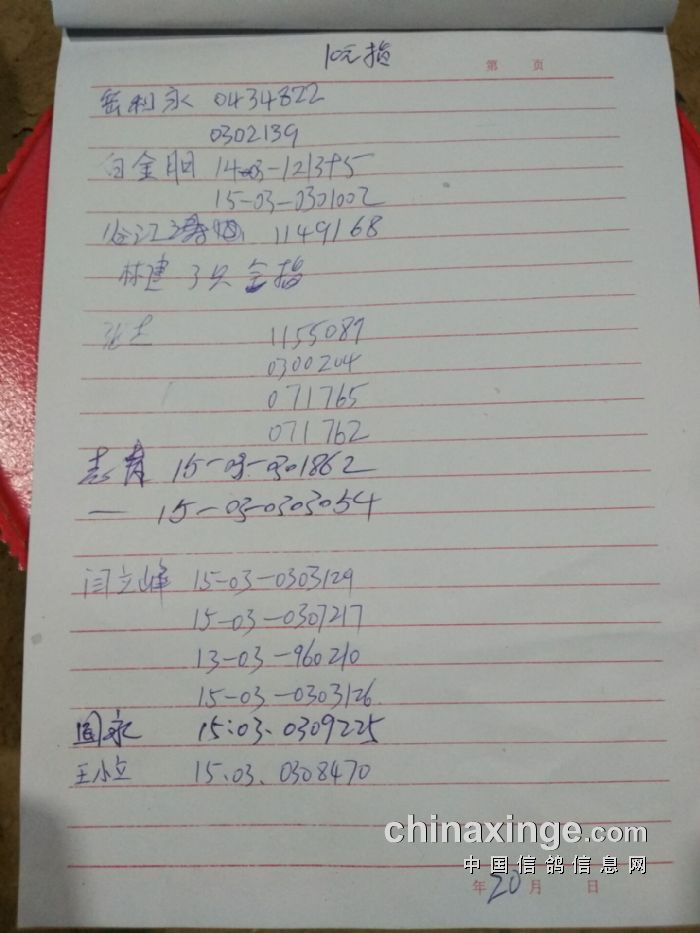 10元指
第 页
岳利永 0434822
0302139
白金胆 14-03-121395
15-03-0301002
1149168
林建 3只全指
张志 1155087
0300204
071765
071762
15-03-0301862
— 15-03-0303054
闫立峰 15-03-0303129
15-03-0307217
13-03-960210
15-03-0303126
国永 15.03.0309225
王小立 15.03.0308470
chinaxinge.com
中国信鸽信息网
年 20 月 日